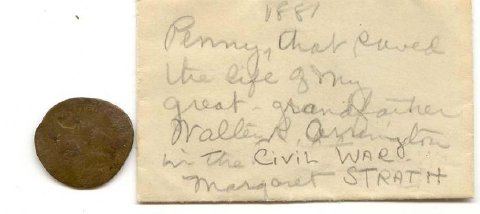 1881
Penny, that saved
the life of my
great-grandfather
Walter Arrington
in the CIVIL WAR.
Margaret STRATH